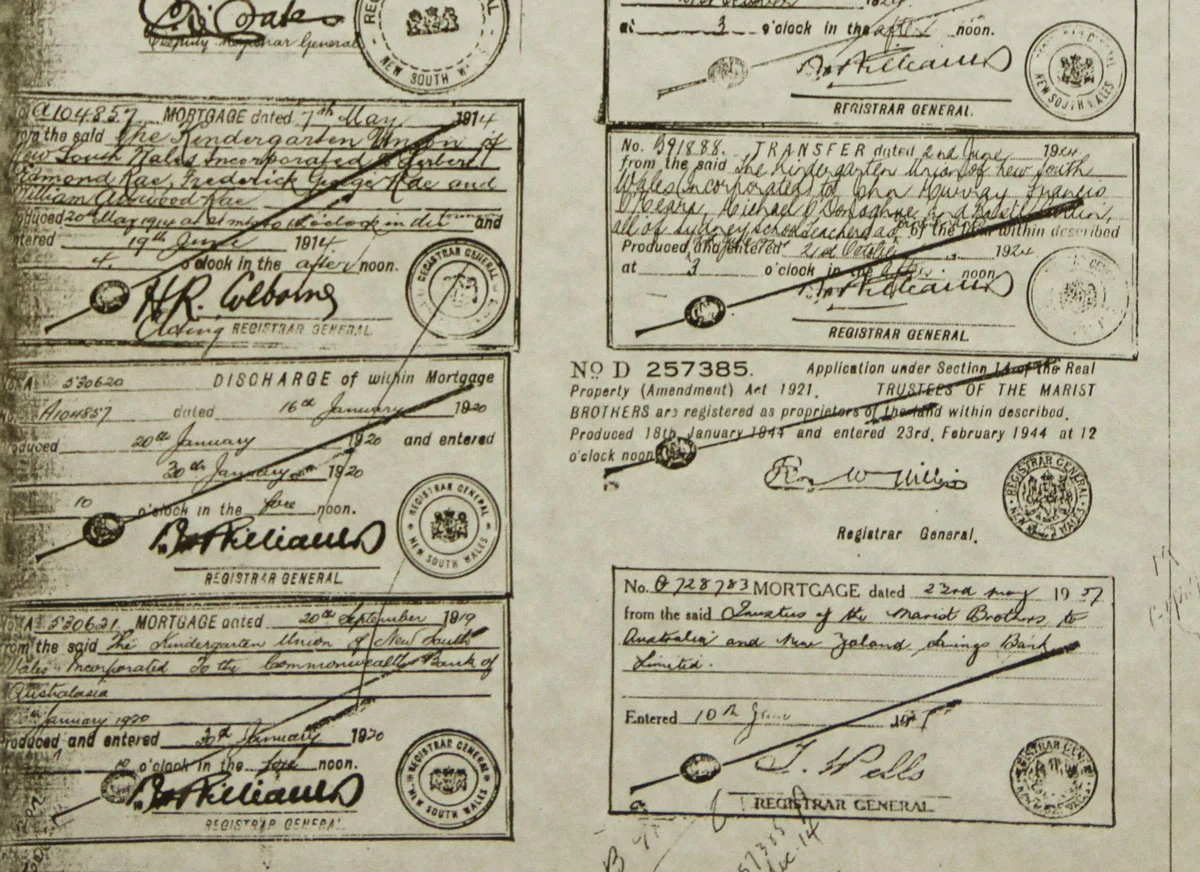 Deputy Registrar General
NEW SOUTH WALES
No. A104857 MORTGAGE dated 7th May 1914
from the said The Kindergarten Union of
New South Wales Incorporated to Herbert
Edmond Rae, Frederick George Rae and
William Attwood Rae
Produced 20th May 1914 at to 12 o'clock in the and
entered 19th June 1914
4 o'clock in the after noon.
H.R. Colborne
Acting REGISTRAR GENERAL.
REGISTRAR GENERAL
No. A 530620 DISCHARGE of within Mortgage
No. A104857 dated 16th January 1920
Produced 20th January 1920 and entered
30th January 1920
10 o'clock in the fore noon.
REGISTRAR GENERAL.
REGISTRAR GENERAL NEW SOUTH WALES
No. A 530621 MORTGAGE dated 20th September 1919
from the said The Kindergarten Union of New South
Wales Incorporated To the Commonwealth Bank of
Australasia
January 1920
Produced and entered 30th January 1920
10 o'clock in the fore noon.
REGISTRAR GENERAL.
REGISTRAR GENERAL NEW SOUTH WALES
at 3 o'clock in the after noon.
REGISTRAR GENERAL.
NEW SOUTH WALES
No. B91888. TRANSFER dated 2nd June 1924
from the said The Kindergarten Union of New South
Wales (Incorporated) to John Murray, Francis
O'Meara, Michael O'Donoghue and Basil
all of Sydney School Teachers of the land within described
Produced and entered 21st October 1924
at 3 o'clock in the after noon
REGISTRAR GENERAL.
No D 257385. Application under Section 14 of the Real
Property (Amendment) Act 1921. TRUSTEES OF THE MARIST
BROTHERS are registered as proprietors of the land within described.
Produced 18th January 1944 and entered 23rd. February 1944 at 12
o'clock noon
Registrar General.
REGISTRAR GENERAL NEW SOUTH WALES
No. G 728783 MORTGAGE dated 23rd May 1957
from the said Trustees of the Marist Brothers to
Australia and New Zealand Savings Bank
Limited.
Entered 10th June 195
J. Wells
REGISTRAR GENERAL
REGISTRAR GENERAL